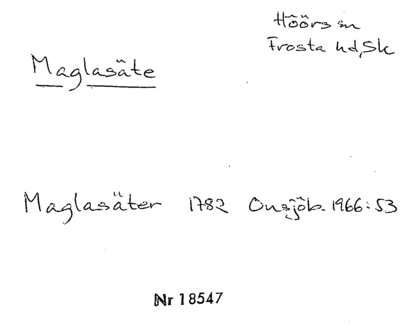 Höörs sn
Frosta hd, Sk
Maglasäte
Maglasäter 1782 Onsjöb. 1966:53
Nr 18547